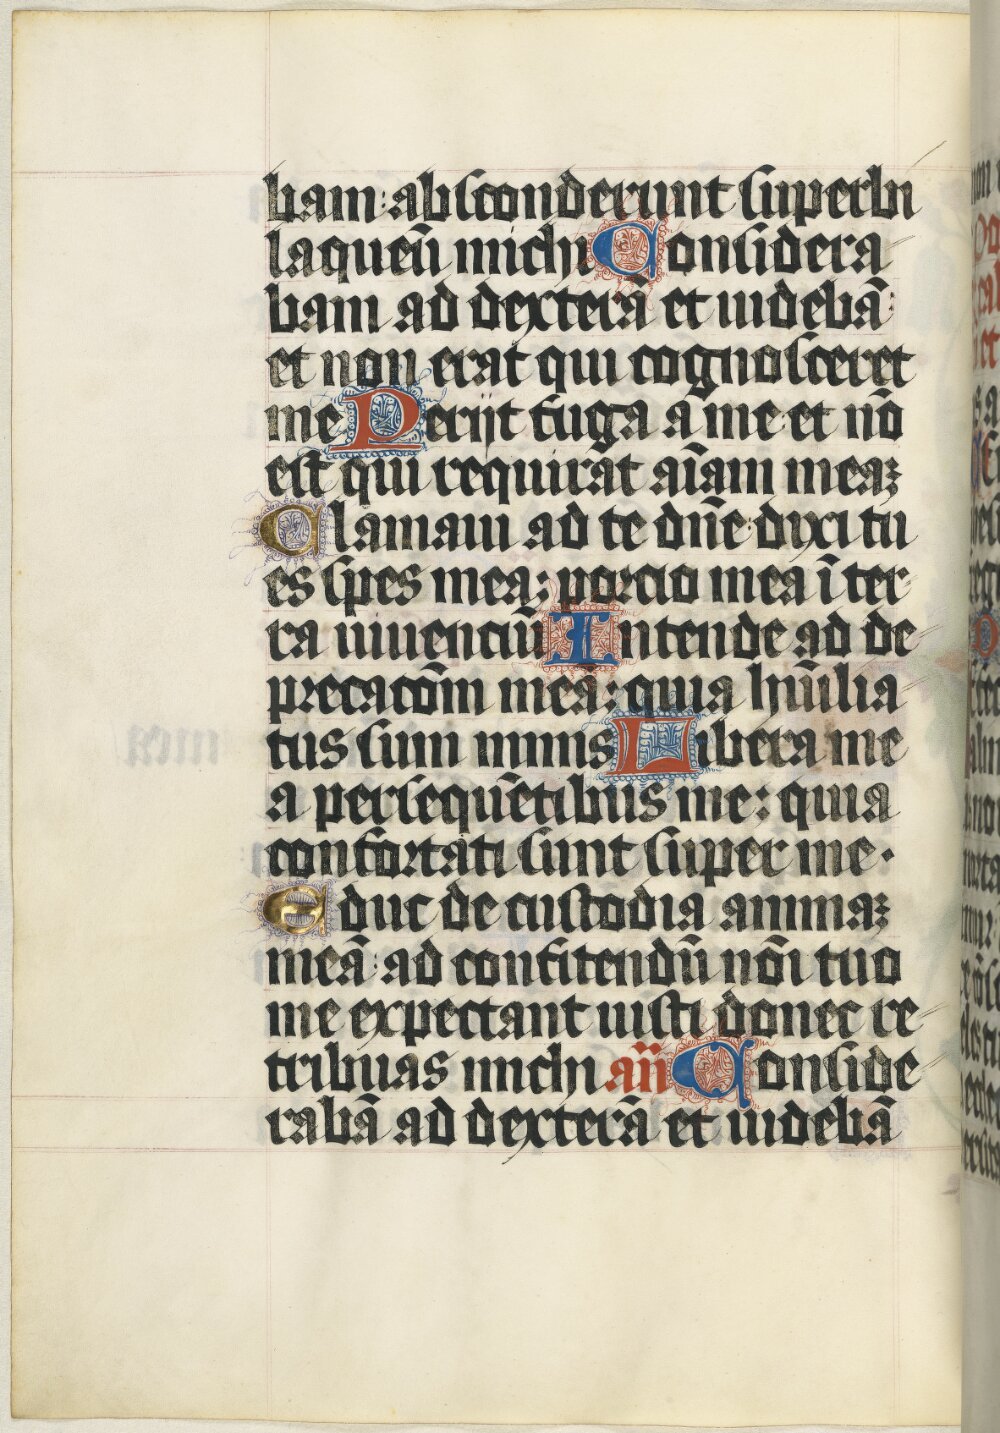 bam: absconderunt superbi
laqueū michi Considera
bam ad dexterā et uidebā:
et non erat qui cognosceret
me Perijt fuga a me et nō
est qui requirat aīam meaꝫ
Clamaui ad te dn̄e: dixi tu
es spes mea: portio mea ī ter
ra uiuentiū Intende ad de
precatōm meā: quia hūilia
tus sum nimis Libera me
a persequētibus me: quia
confortati sunt super me.
Educ de custodia animaꝫ
meā: ad confitendū nōi tuo
me expectant iusti donec re
tribuas michi an̄ Conside
rabā ad dexterā et uidebā